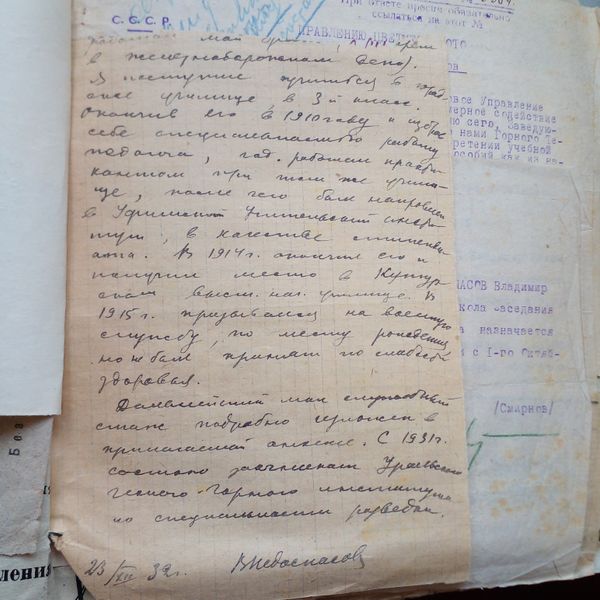 При ответе просим обязательно
ссылаться на этот №
С.С.С.Р.
работал мой
в железнодорожном депо).
Я поступил учиться в город-
ское училище, в 3й класс.
Окончив его в 1910 году и избрав
себе специальность работу
педагога, год работал практи-
кантом при том же учили-
ще, после чего был направлен
в Уфимский Учительский инсти-
тут, в качестве стипенди-
ата. В 1914 г. окончил его и
получил место в Кунгур-
ском высш. нач. училище. В
1915 г. призывался на военную
службу, по месту рождения
но не был принят по слабости
здоровья.
Дальнейший мой служебный
стаж подробно изложен в
прилагаемой анкете. С 1931 г.
состою заочником Уральского
Горного института
по специальности разведки.
23/XII 32 г. ВНебоспасов
вое Управление
мерное содействие
ю сего, заведую-
нами Горного Те-
ретении учебной
особий как из на-
ПАСОВ Владимир
кола заседания
а назначается
с I-го Октяб-
/Смирнов/
ления